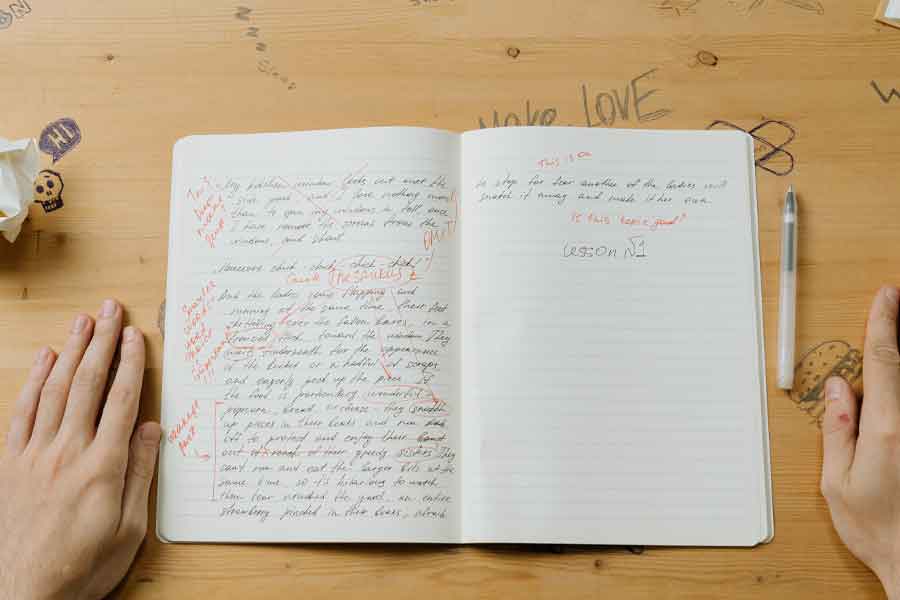 ON
N
N
N
N
Sleep
Make LOVE
W
HI
My kitchen window looks out over the
and I love nothing more
than to open my windows in fall once
I have removed the screens from the
windows, and shout
OMIT!
chick chick chick chick!
THESAURUS
And the ladies come flapping and
running at the same time, their feet
over the fallen leaves, in a
toward the window. They
wait underneath for the appearance
of the bucket or a handful of scraps
and eagerly peck up the piece. If
the food is particularly wonderful -
popcorn, bread, or cheese - they snatch
up pieces in their beaks and run
off to protect and enjoy their
out of reach of their greedy sisters. They
can't run and eat the larger bits at the
same time, so it's hilarious to watch
them tear around the yard, an entire
strawberry pinched in their beaks, afraid
weakest
part
This is on
to stop for fear another of the ladies will
snatch it away and make it her own.
Is this topic good?
Lesson №1